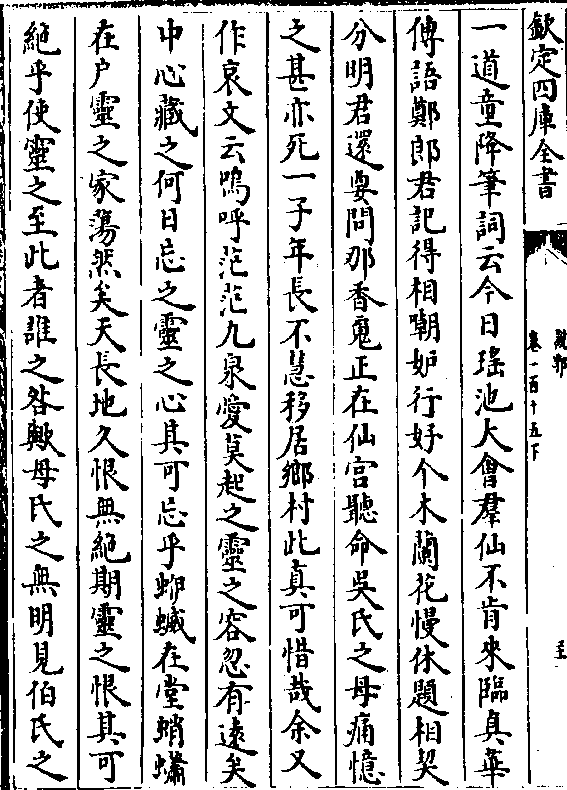 欽定四庫全書
說郛
卷一百十五下
一道童降筆詞云今日瑤池大會羣仙不肯來臨真華
傳語鄭郎君記得相嘲妒行好个木蘭花慢休題相契
分明君還要問那香魂正在仙宫聽命吳氏之母痛憶
之甚亦死一子年長不慧移居鄉村此真可惜哉余又
作哀文云嗚呼茫茫九泉愛莫起之靈之容忽有遠矣
中心藏之何日忘之靈之心其可忘乎蛜蝛在堂蛸蠨
在户靈之家蕩然矣天長地久恨無絶期靈之恨其可
絶乎使靈之至此者誰之咎歟母氏之無明見伯氏之